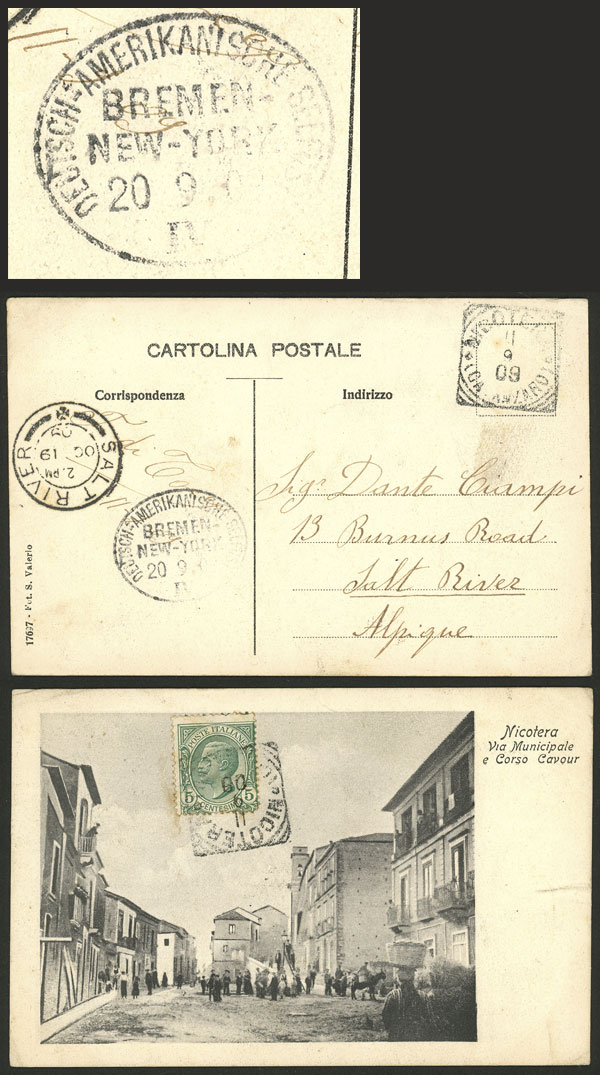 DEUTSCH-AMERIKANISCHE
BREMEN-
NEW-YORK
20 9
IV
CARTOLINA POSTALE
Corrispondenza
Indirizzo
11
9
09
SALT RIVER
2.PM
OC 19
09
DEUTSCH-AMERIKANISCHE
BREMEN-
NEW-YORK
20 9
IV
Sigr Dante Ciampi
13 Burnus Road
Salt River
Alpique
17697 - Fot. S. Valerio
Nicotera
Via Municipale
e Corso Cavour
POSTE ITALIANE
5 5
CENTESIMI
NICOTERA
11
9
09